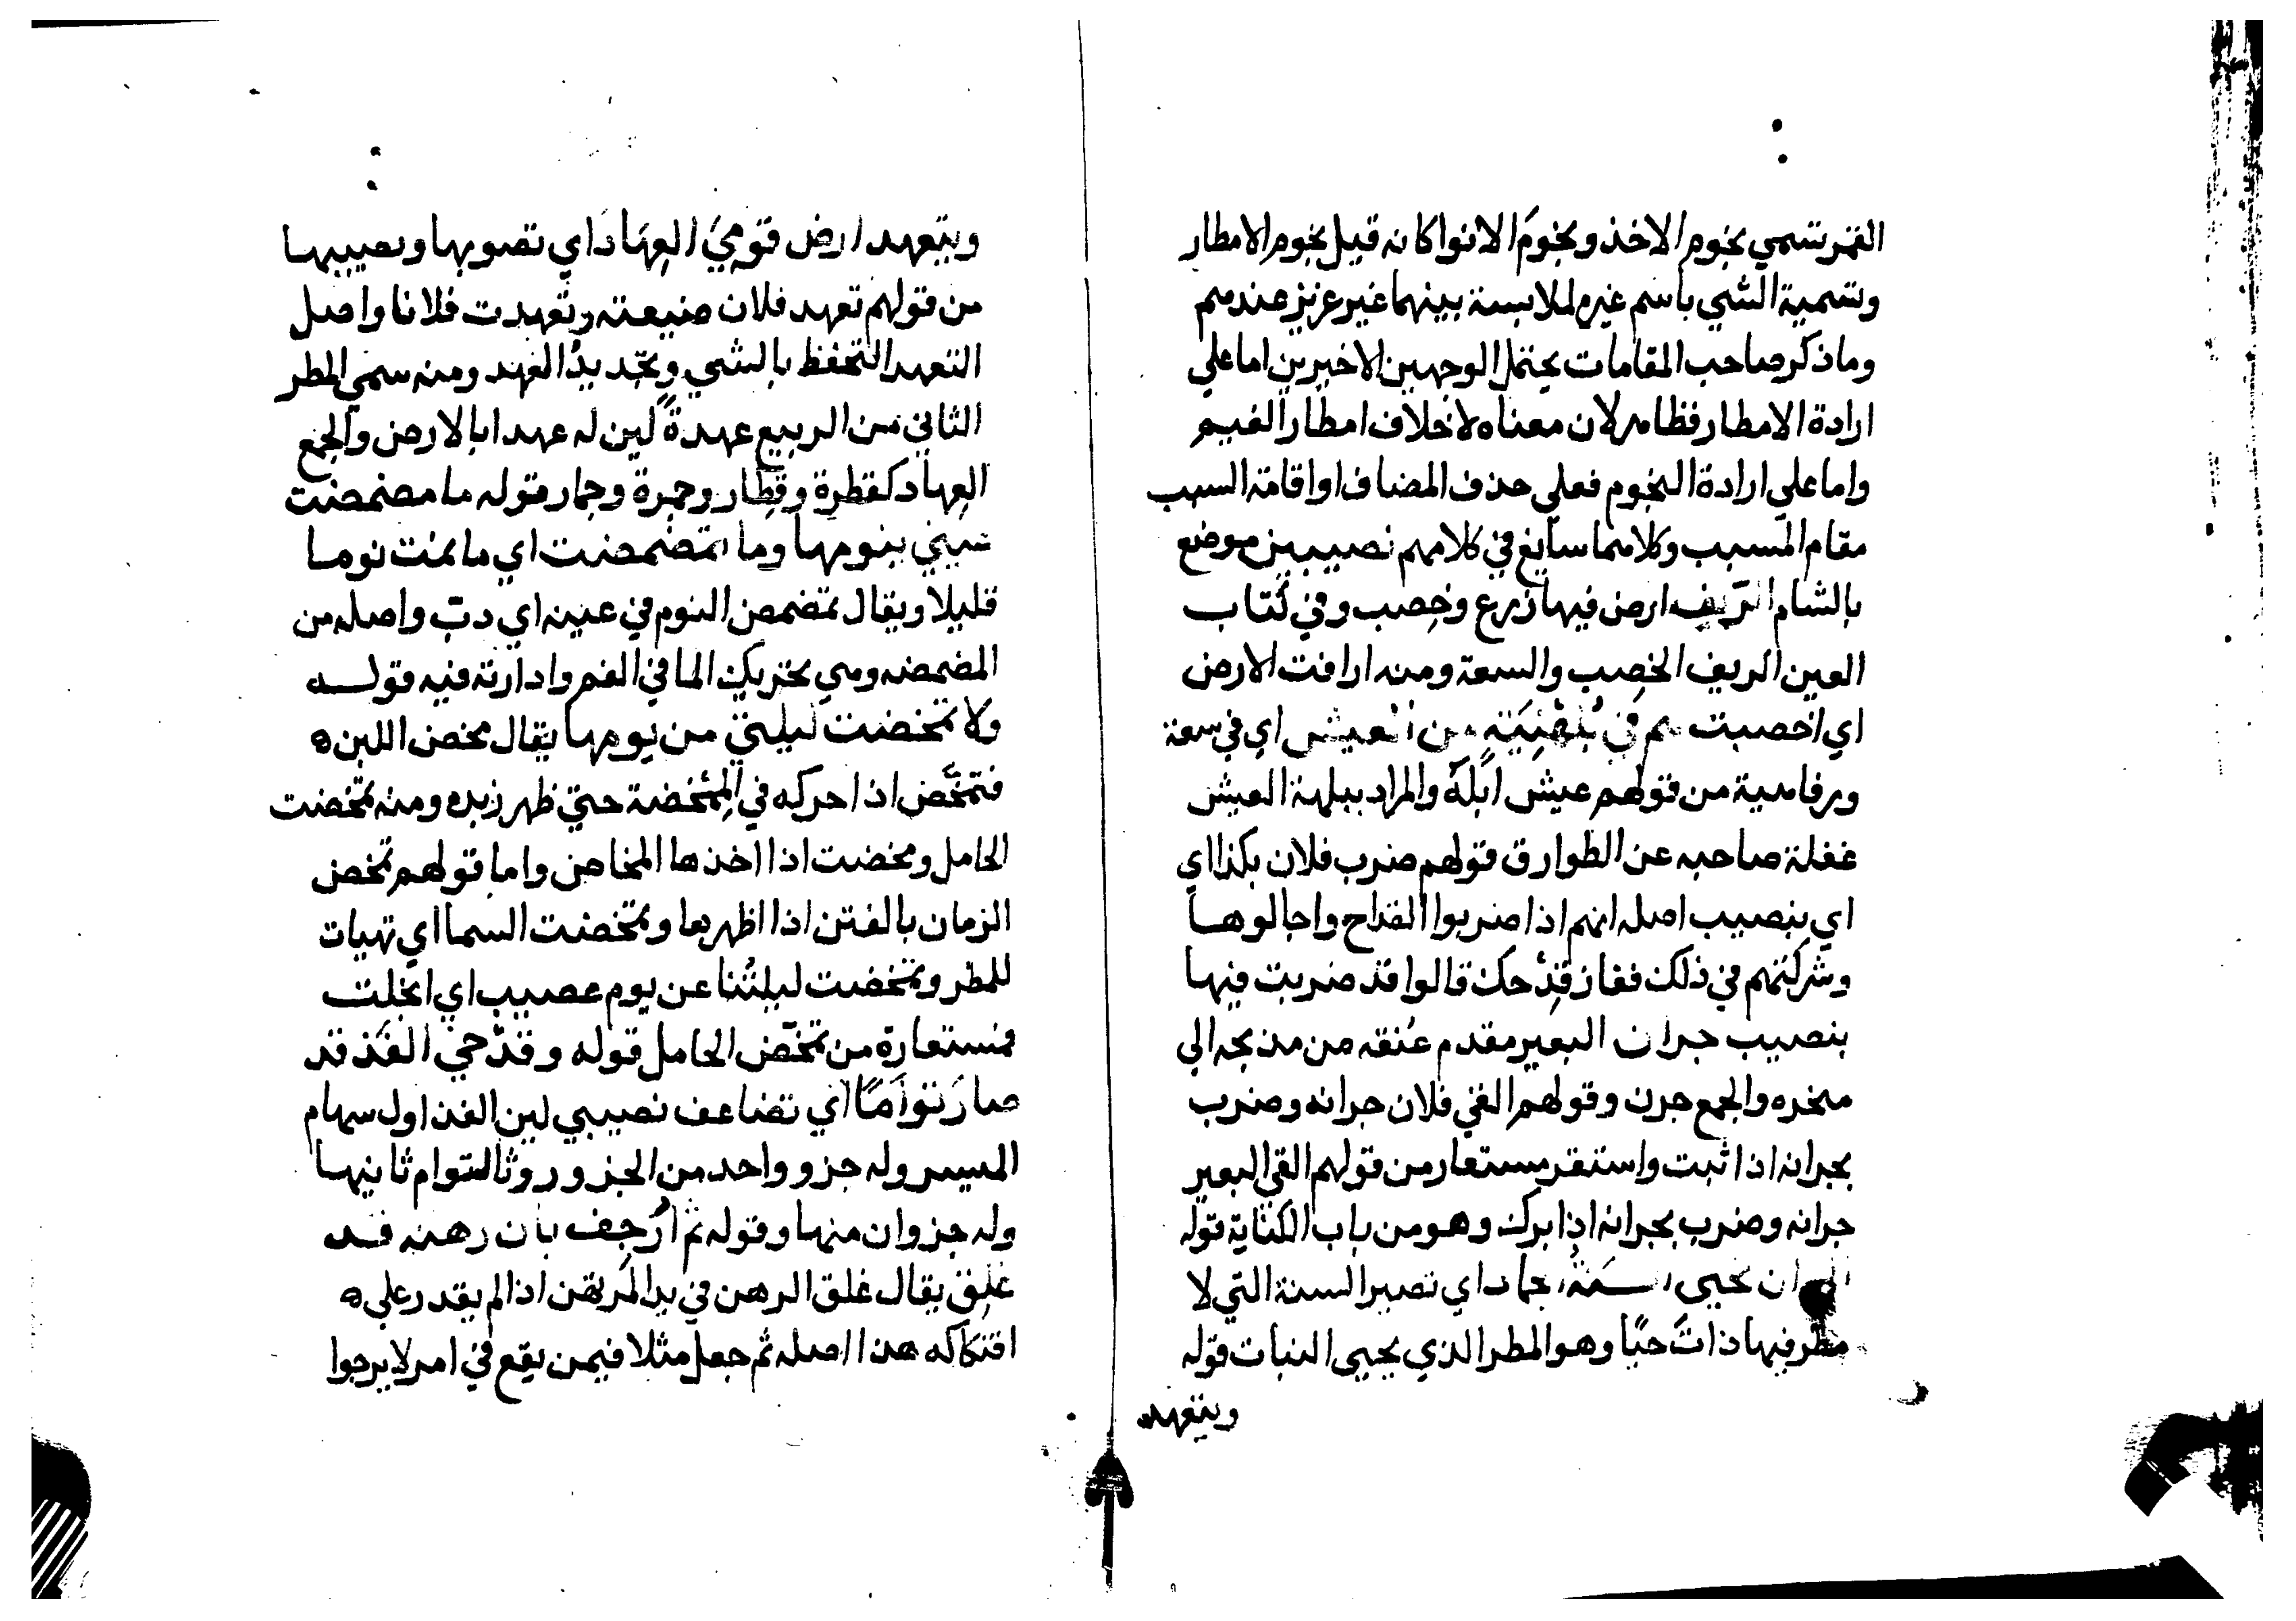 القمر تسمي نجوم الاخذ ونجوم الانوا كانه قيل نجوم الامطار
وتسمية الشي باسم غيره لملابسة بينهما غير عزيز عندهم
وما ذكر صاحب المقامات يحتمل الوجهين الاخيرين اما علي
ارادة الامطار فظاهر لان معناه لاخلاف امطار الغيم
واما علي ارادة النجوم فعلي حذف المضاف او اقامة السبب
مقام المسبب وكلاهما سايغ في كلامهم نصيبين موضع
بالشام الرّيف ارض فيها زرع وخِصب وفي كتاب
العين الريف الخِصب والسعة ومنه ارافت الارض
اي اخصبت هم في بُلَهْنِيَة من العيش اي في سعة
ورفاهية من قولهم عيش ابلَهُ والمراد ببلهة العيش
غفلة صاحبه عن الطوارق قولهم ضرب فلان بكذا اي
اي بنصيب اصله انهم اذا ضربوا القداح واجالوها
وشركتهم في ذلك ففاز قِدْحك قالوا قد ضربت فيها
بنصيب جران البعير مقدم عُنقه من مذبحه الي
منحره والجمع جرن وقولهم القي فلان جرانه وضرب
بجرانه اذا ثبت واستقر مستعار من قولهم القي البعير
جرانه وضرب بجرانه اذا برك وهو من باب الكناية قوله
ان تحيي السَنَةُ جماد اي تصير السنة التي لا
مطر فيها ذات حيًا وهو المطر الذي يحيي النبات قوله
ويتعهد
ويتعهد ارض قومِيَ العِهَادُ اي تصوبها وتصيبها
من قولهم تعهد فلان ضيعته وتعهدت فلانا واصل
التعهد التحفظ بالشي وتجديدُ العهد ومنه سمي المطر
الثاني من الربيع عهدةً لين له عهدا بالارض والجمع
العِهاد كقطرة وقِطار وجمرة وجمار قوله ما مضمضت
عيني بنومها وما تمضمضت اي ما نمت نوما
قليلا ويقال تمضمض النوم في عينه اي دبّ واصله من
المضمضه وهي تحريك الما في الفم وادارته فيه قوله
ولا تمخضت ليلتي من يومها يقال مخض اللبن ه
فتمخَّض اذا حركه في المِمْخضة حتي ظهر زبده ومنه تمخضت
الحامل ومخضت اذا اخذها المخاض واما قولهم تمخض
الزمان بالفتن اذا اظهرها وتمخضت السما اي تهيات
للمطر وتمخضت ليلتُنا عن يوم عصيب اي انجلت
فمستعارة من تمخّض الحامل قوله وقدْحي الفَذ قد
صارَ تَوْاَمًا اي تضاعف نصيبي لين الفذ اول سهام
الميسر وله جزو واحد من الجزور والتوام ثانيها
وله جزوان منها وقوله ثم اُرْجِف بان رهنه قد
غلِق يقال غلق الرهن في يد المرتهن اذا لم يقدر علي ه
افتكاكه هذا اصله ثم جعل مثلا فيمن يقع في امر لا يرجوا